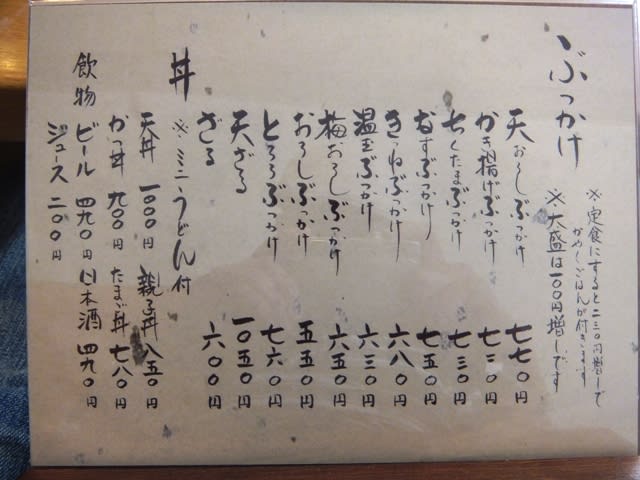 ぶっかけ
※定食にすると二三〇円増しで
ごはんが付きます
※大盛は一〇〇円増しです
天おろしぶっかけ 七七〇円
かき揚げぶっかけ 七三〇円
ちくたまぶっかけ 七三〇円
なすぶっかけ 七五〇円
きつねぶっかけ 六八〇円
温玉ぶっかけ 六三〇円
梅おろしぶっかけ 六五〇円
おろしぶっかけ 五五〇円
とろろぶっかけ 七六〇円
天ざる 一〇五〇円
ざる 六〇〇円
丼 ※ミニうどん付
天丼 一〇〇〇円 親子丼 八五〇円
かつ丼 九〇〇円 たまご丼 七八〇円
飲物
ビール 四九〇円 日本酒 四九〇円
ジュース 二〇〇円